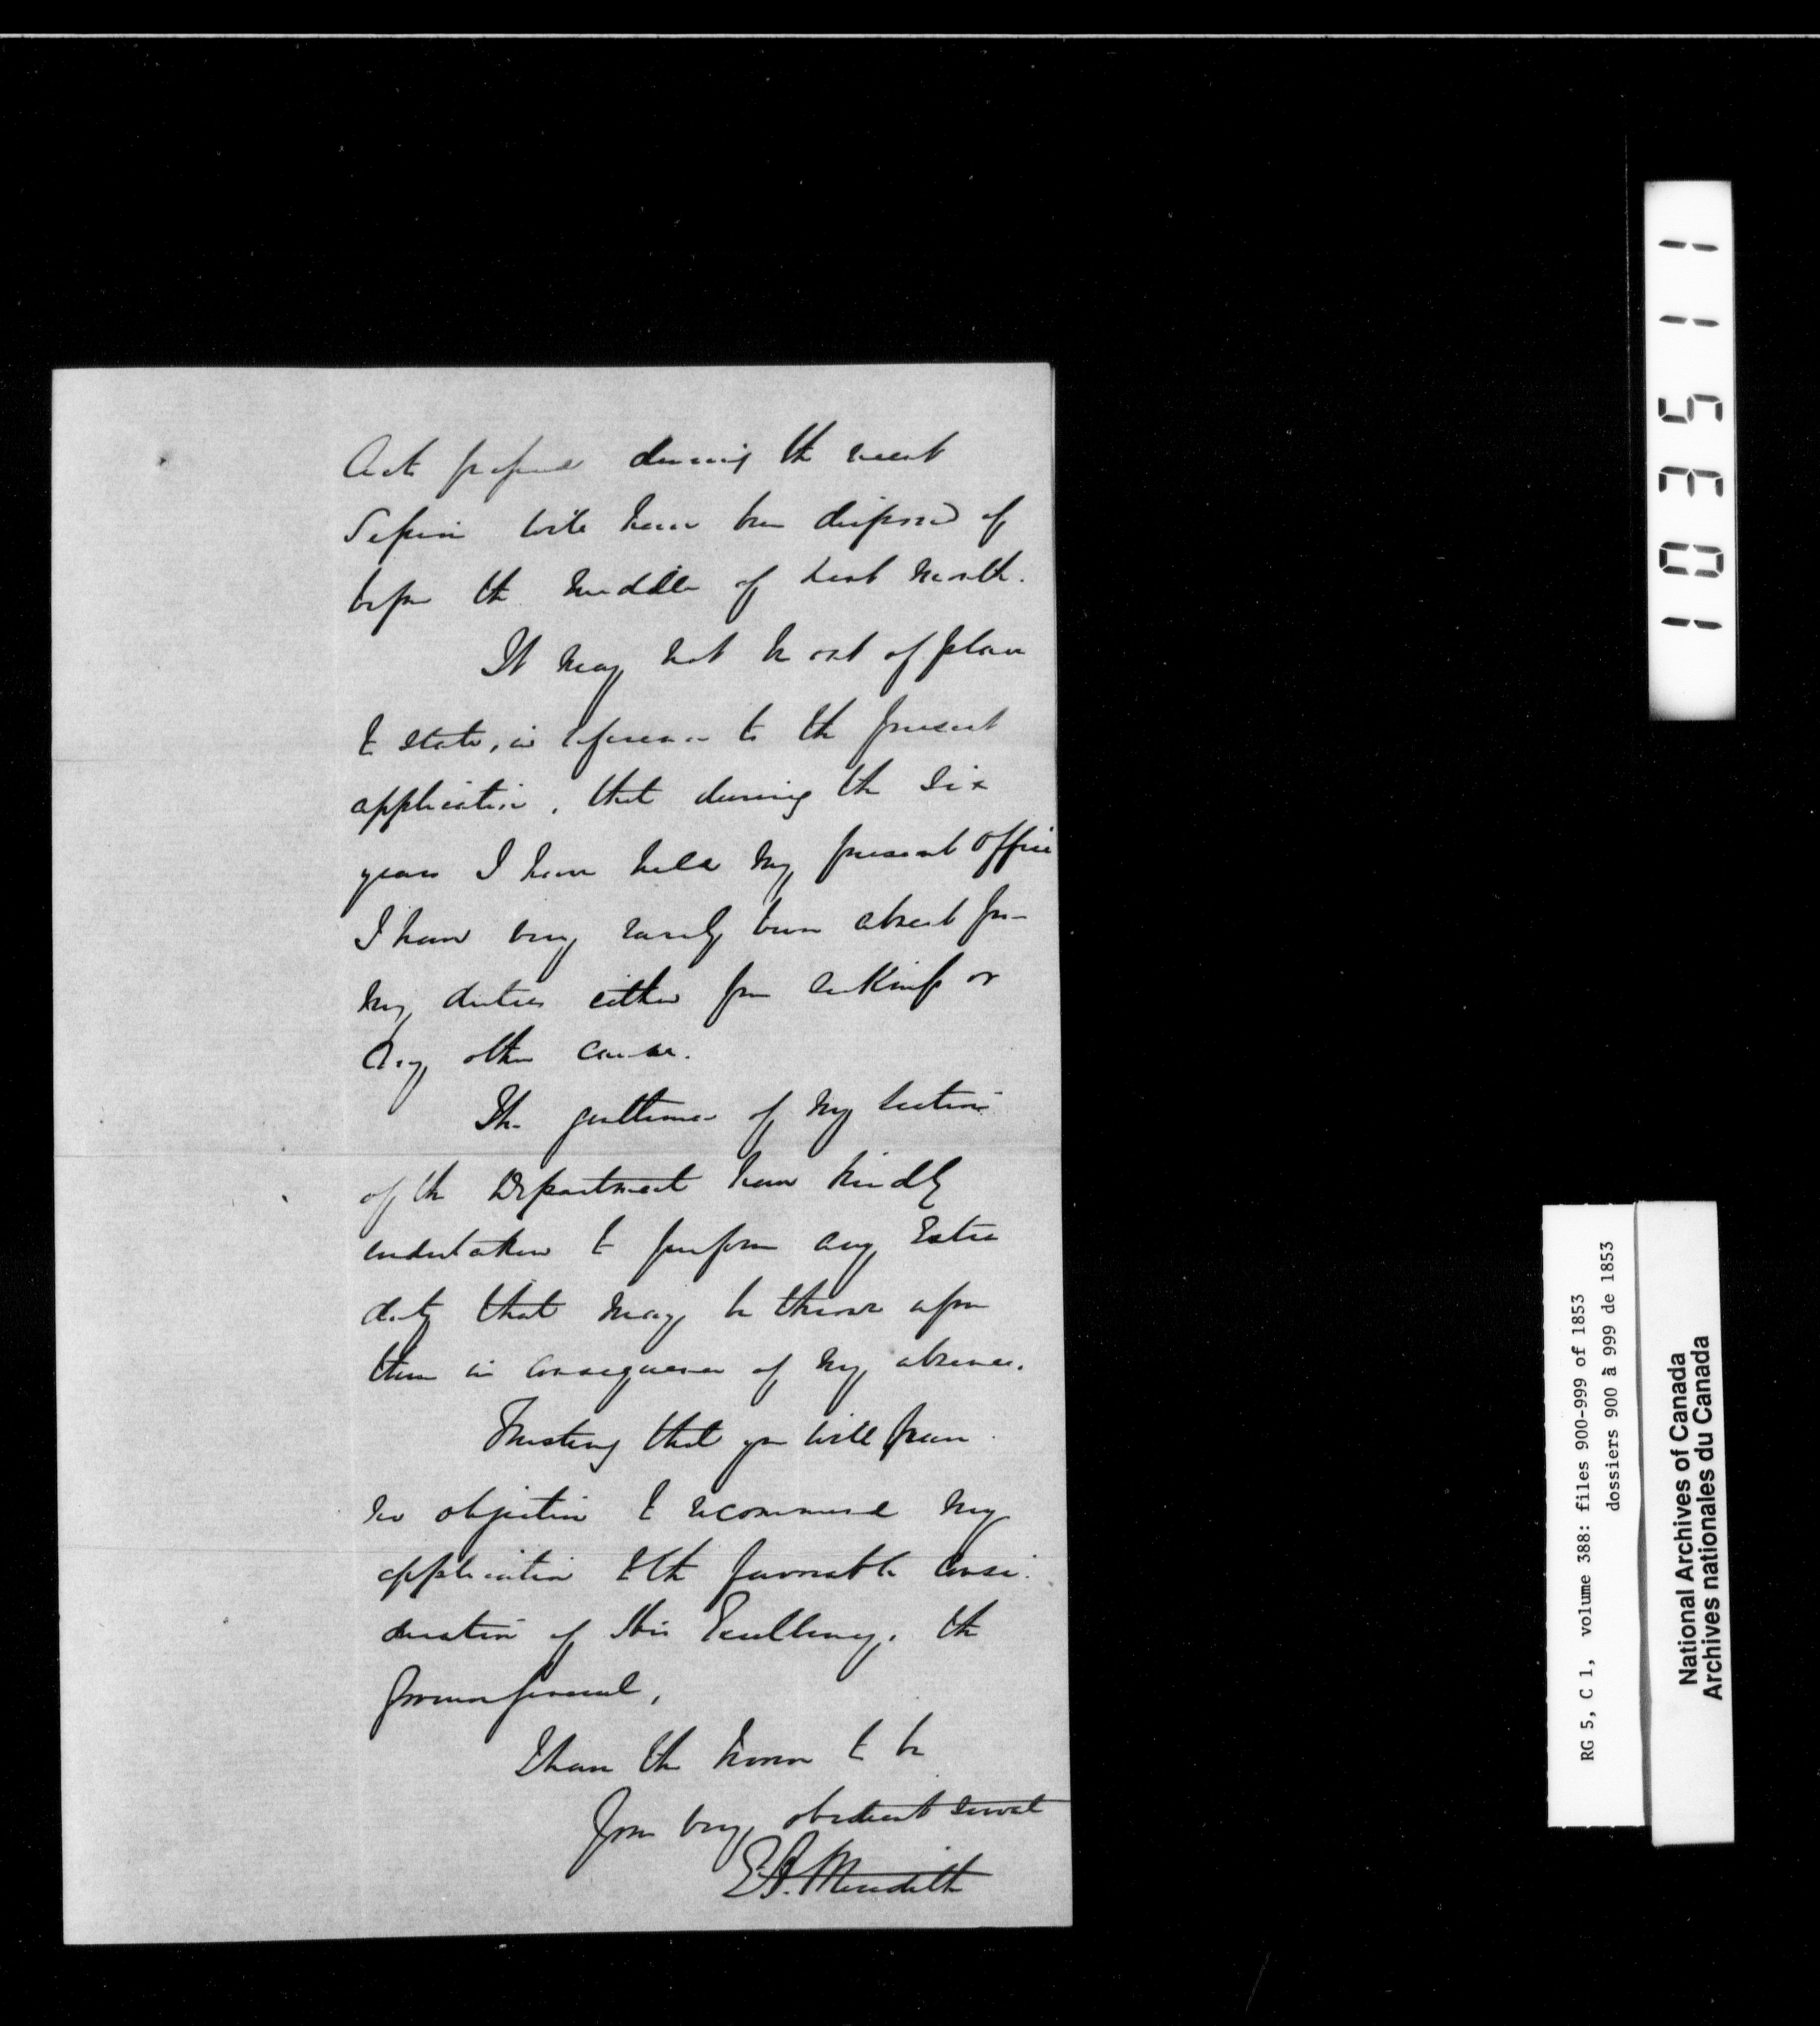 Acts passed during the recent
Session will have been disposed of
before the middle of next month.
It may not be out of place
to state, in reference to the present
application, that during the six
years I have held my present office
I have very rarely been absent from
my duties either from sickness or
any other cause.
The gentlemen of my section
of the Department have kindly
undertaken to perform any extra
duty that may be thrown upon
them in consequence of my absence.
Trusting that you will
no objection to recommend my
application to the favorable consi-
deration of His Excellency, the
Governor General,
I have the honor to be
Your very obedient servant
E.A. Meredith
103511
RG 5, C 1, volume 388: files 900-999 of 1853
dossiers 900 à 999 de 1853
National Archives of Canada
Archives nationales du Canada